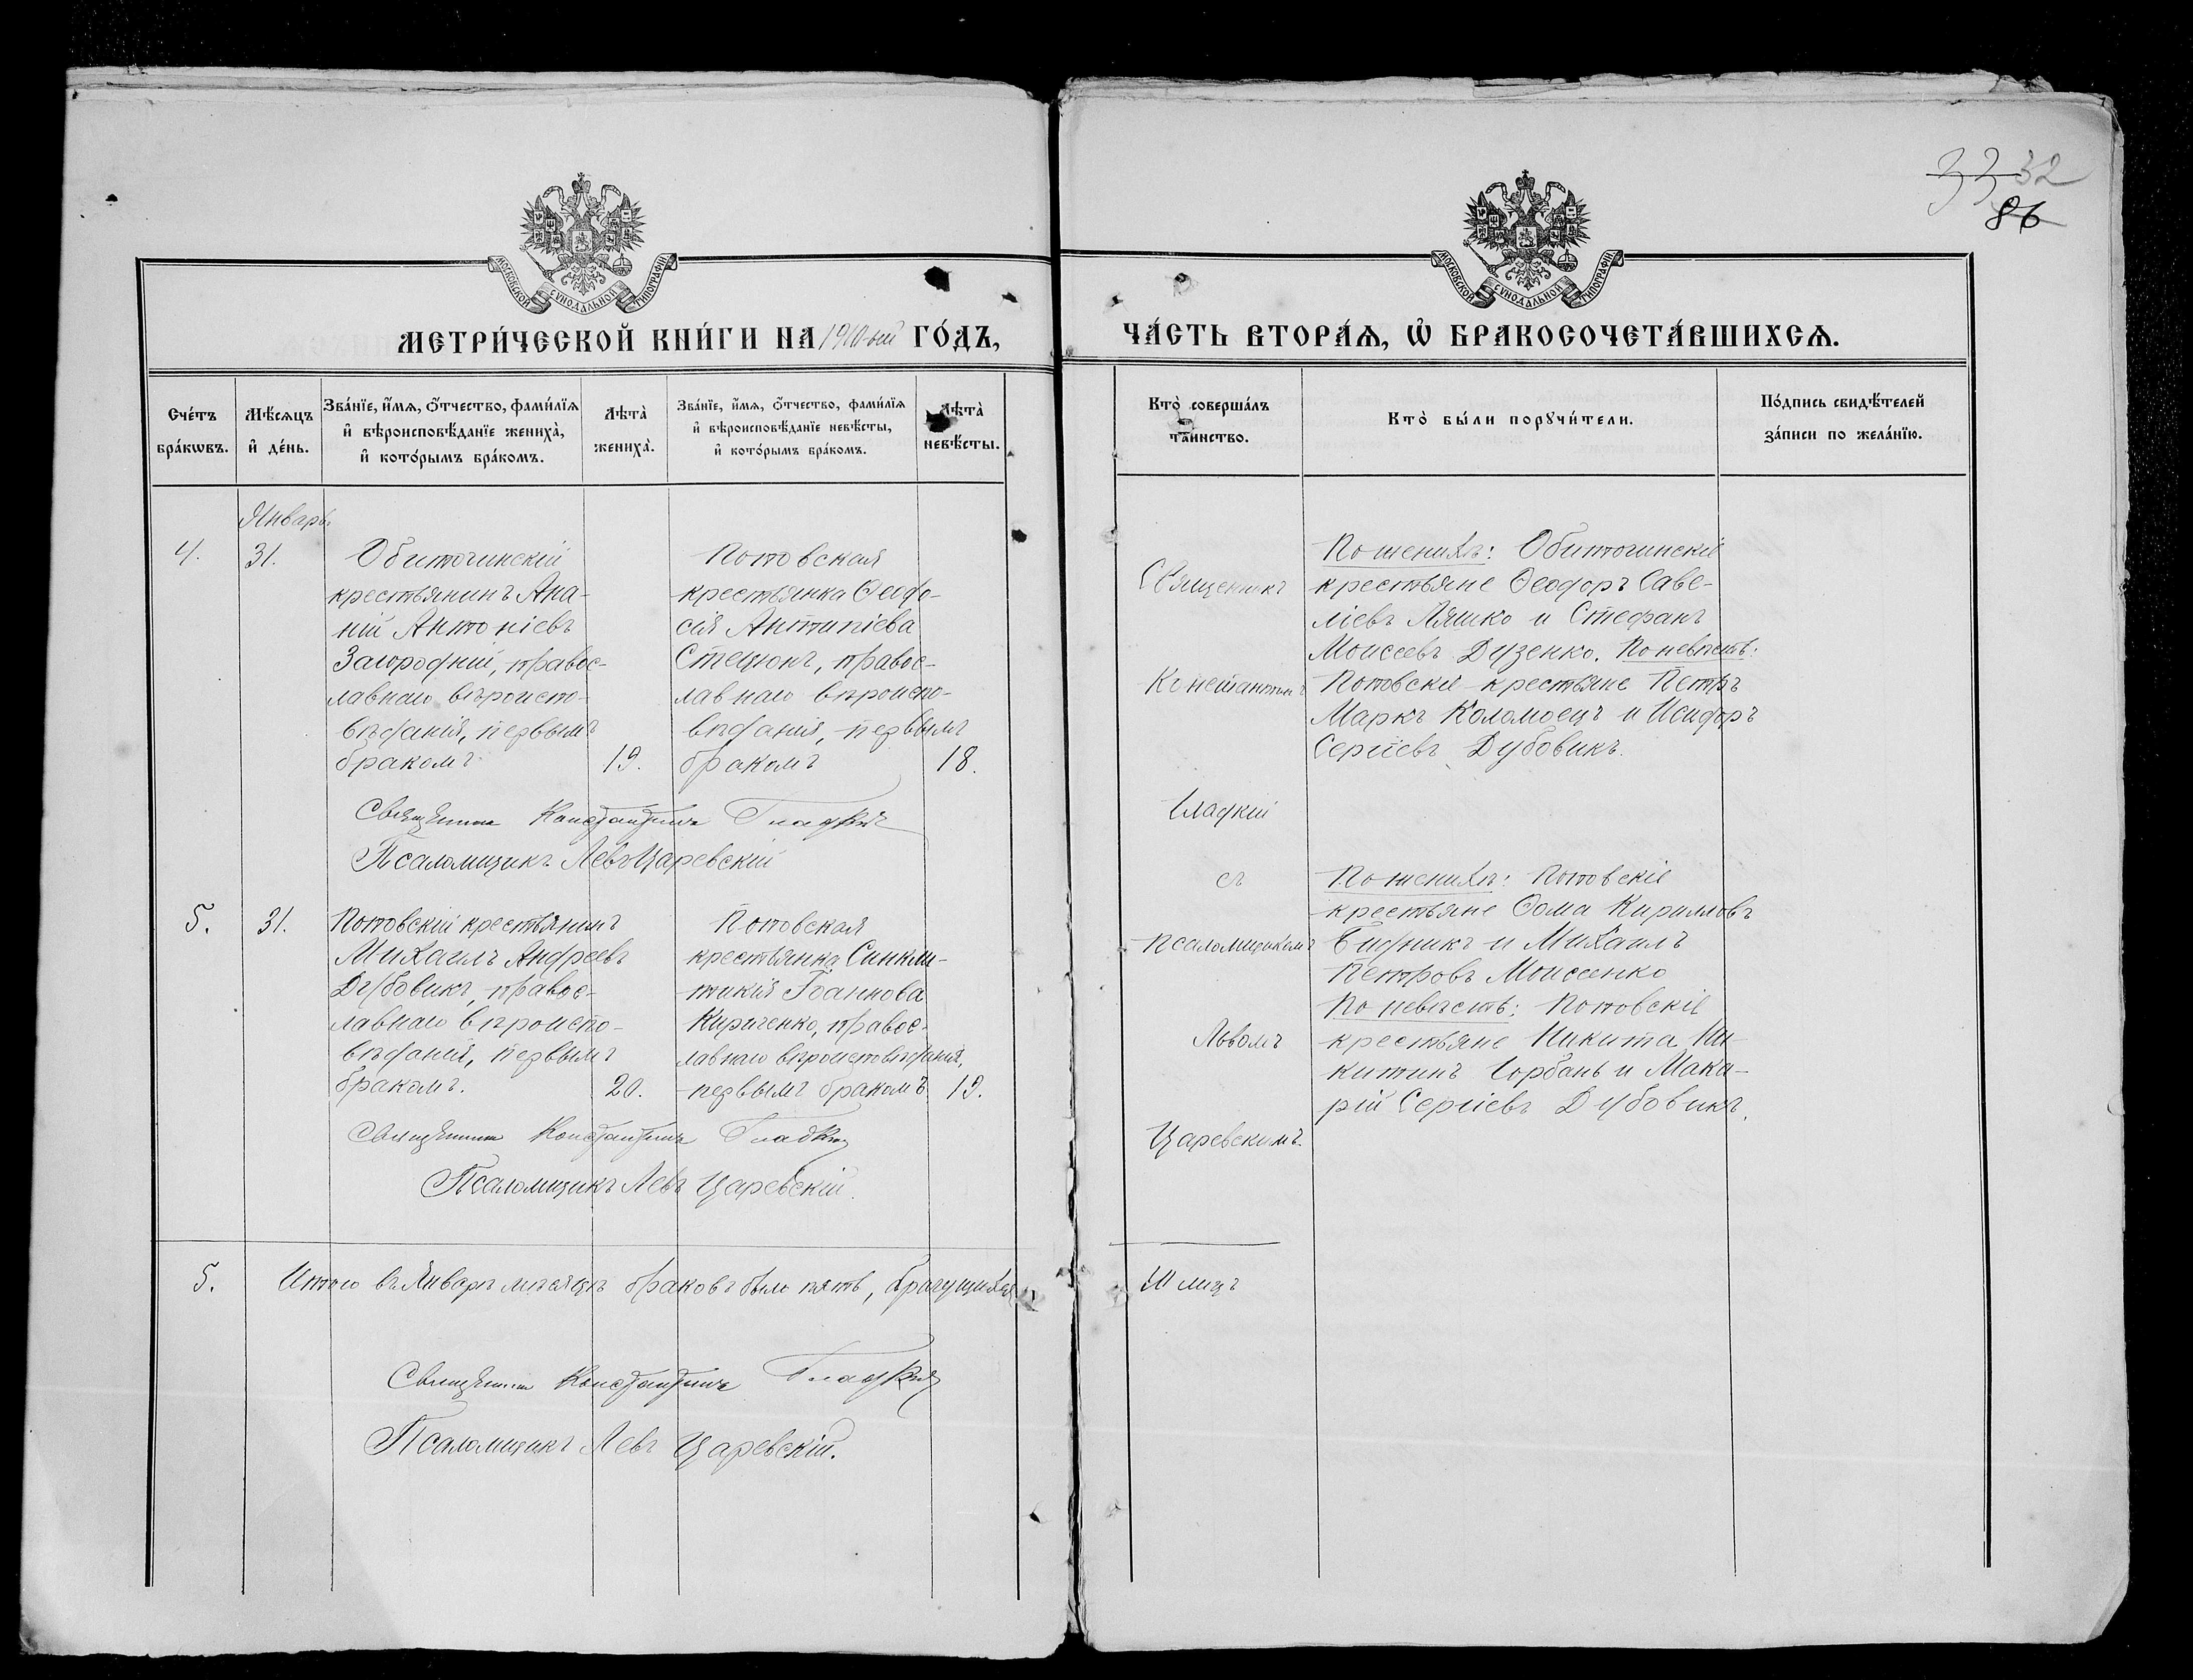 33 32
86
МОСКОВСКОЙ СУНОДАЛЬНОЙ ТИПОГРАФІИ
МЕТРИ́ЧЕСКОЙ КНИ́ГИ НА 1910-ый ГО́ДЪ,
Сче́тъ бра́кѡвъ.
Мѣ́сяцъ и҆ де́нь.
Зва́нїе, и҆́мѧ, ѻ҆́тчество, фами́лїѧ
и҆ вѣроисповѣ́данїе жениха̀,
и҆ кото́рымъ бра́комъ.
Лѣта̀ жениха̀.
Зва́нїе, и҆́мѧ, ѻ҆́тчество, фами́лїѧ
и҆ вѣроисповѣ́данїе невѣ́сты,
и҆ кото́рымъ бра́комъ.
Лѣта̀ невѣ́сты.
Январь.
4.
31.
Обиточинскій
крестьянинъ Ана-
ній Антоніевъ
Загородній, правос-
лавнаго вѣроиспо-
вѣданія, первымъ
бракомъ
19.
Поповская
крестьянка Ѳеодо-
сія Антипіева
Стецюкъ, правос-
лавнаго вѣроиспо-
вѣданія, первымъ
бракомъ
18.
Священникъ Константинъ Гладкій
Псаломщикъ Левъ Царевскій
5.
31.
Поповскій крестьянинъ
Михаилъ Андреевъ
Дубовикъ, правос-
лавнаго вѣроиспо-
вѣданія, первымъ
бракомъ.
20.
Поповская
крестьянка Синкли-
тикія Іоаннова
Кириченко, правос-
лавнаго вѣроисповѣданія,
первымъ бракомъ
19.
Священникъ Константинъ Гладкій
Псаломщикъ Левъ Царевскій.
5.
Итого въ Январѣ мѣсяцѣ браковъ было пять, брачущихся
Священникъ Константинъ Гладкій
Псаломщикъ Левъ Царевскій.
МОСКОВСКОЙ СУНОДАЛЬНОЙ ТИПОГРАФІИ
ЧА́СТЬ ВТОРА́Ѧ, Ѡ҆ БРАКОСОЧЕТА́ВШИХСѦ.
Кто̀ соверша́лъ
та́инство.
Кто̀ бы́ли порꙋчи́тели.
По́дпись свидѣ́телей
за́писи по жела́нїю.
Священникъ
Константинъ
Гладкій
съ
псаломщикомъ
Львомъ
Царевскимъ.
По женихѣ: Обиточинскіе
крестьяне Ѳеодоръ Саве-
ліевъ Ляшко и Стефанъ
Моисеевъ Дузенко. По невѣстѣ:
Поповскіе крестьяне Петръ
Маркъ Коломоецъ и Исидоръ
Сергіевъ Дубовикъ.
По женихѣ: Поповскіе
крестьяне Ѳома Кирилловъ
Бидникъ и Михаилъ
Петровъ Моисеенко
По невѣстѣ: Поповскіе
крестьяне Никита Ни-
китинъ Горбань и Мака-
рій Сергіевъ Дубовикъ.
10 лицъ